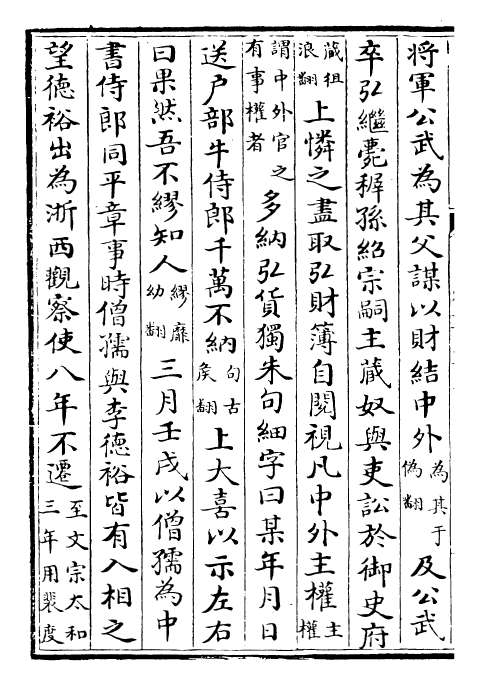 將軍公武為其父謀以財結中外為其于偽翻及公武
卒弘繼薨穉孫紹宗嗣主藏奴與吏訟於御史府
藏徂浪翻上憐之盡取弘財簿自閱視凡中外主權主權
謂中外官之有事權者多納弘貨獨朱句細字曰某年月日
送户部牛侍郎千萬不納句古矦翻上大喜以示左右
曰果然吾不繆知人繆靡幼翻三月壬戌以僧孺為中
書侍郎同平章事時僧孺與李德裕皆有入相之
望德裕出為浙西觀察使八年不遷至文宗太和三年用裴度